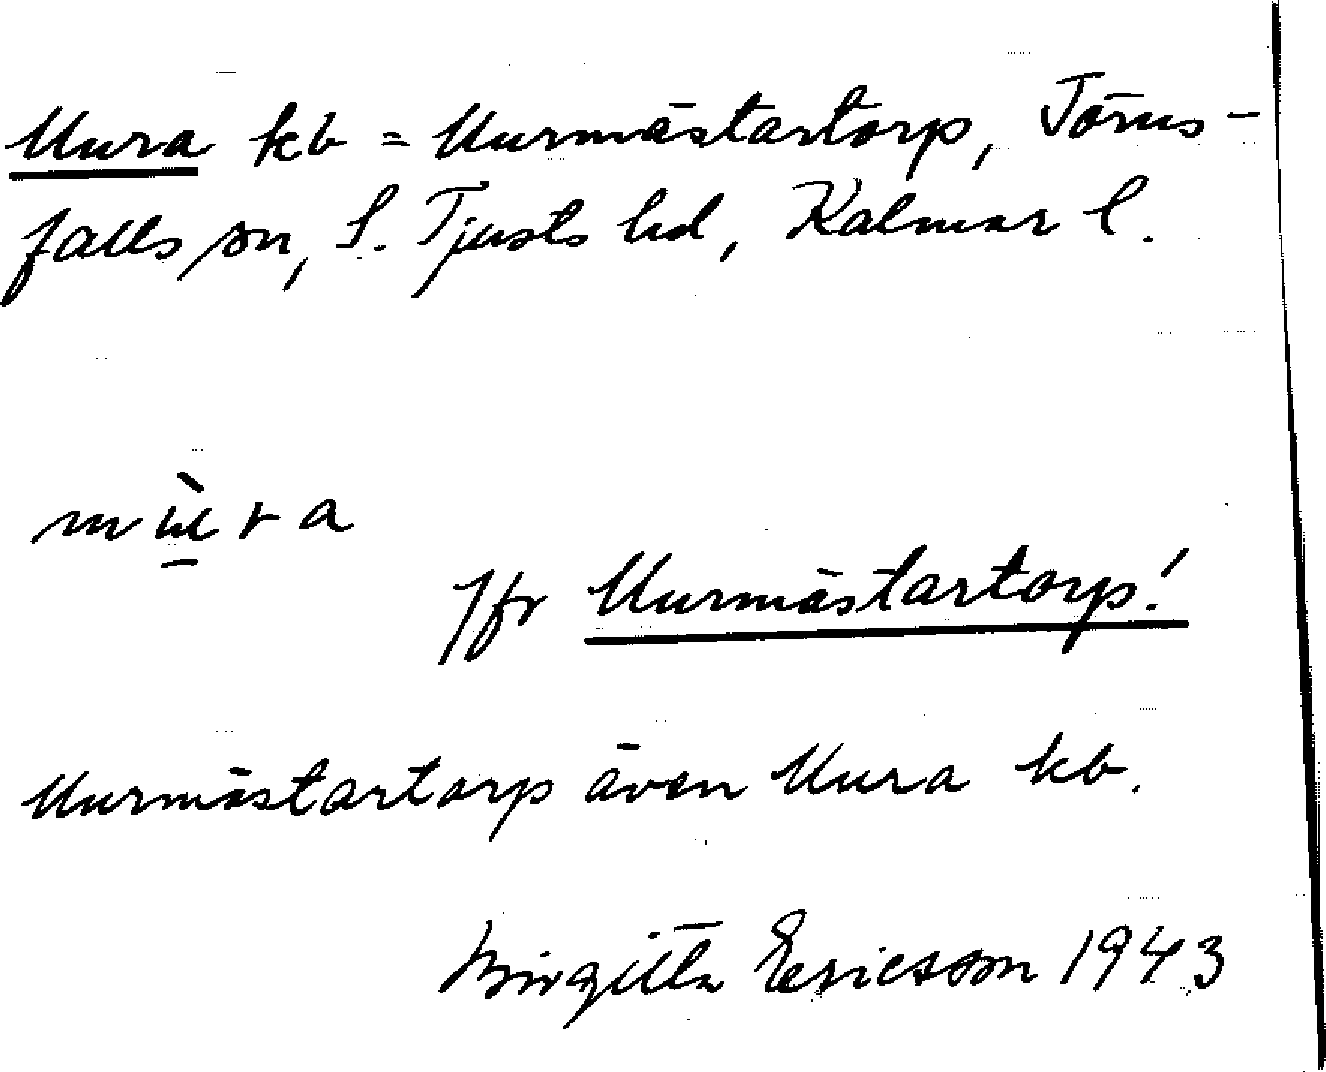 Mura kb = Murmästartorp, Törns-
falls sn, S. Tjusts hd, Kalmar l.
mù̱ra
Jfr Murmästartorp!
Murmästartorp även Mura kb.
Birgitta Ericsson 1943